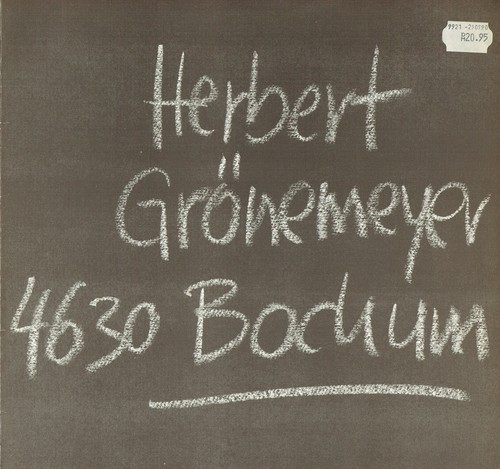 9921-210190
R20.95
Herbert
Grönemeyer
4630 Bochum